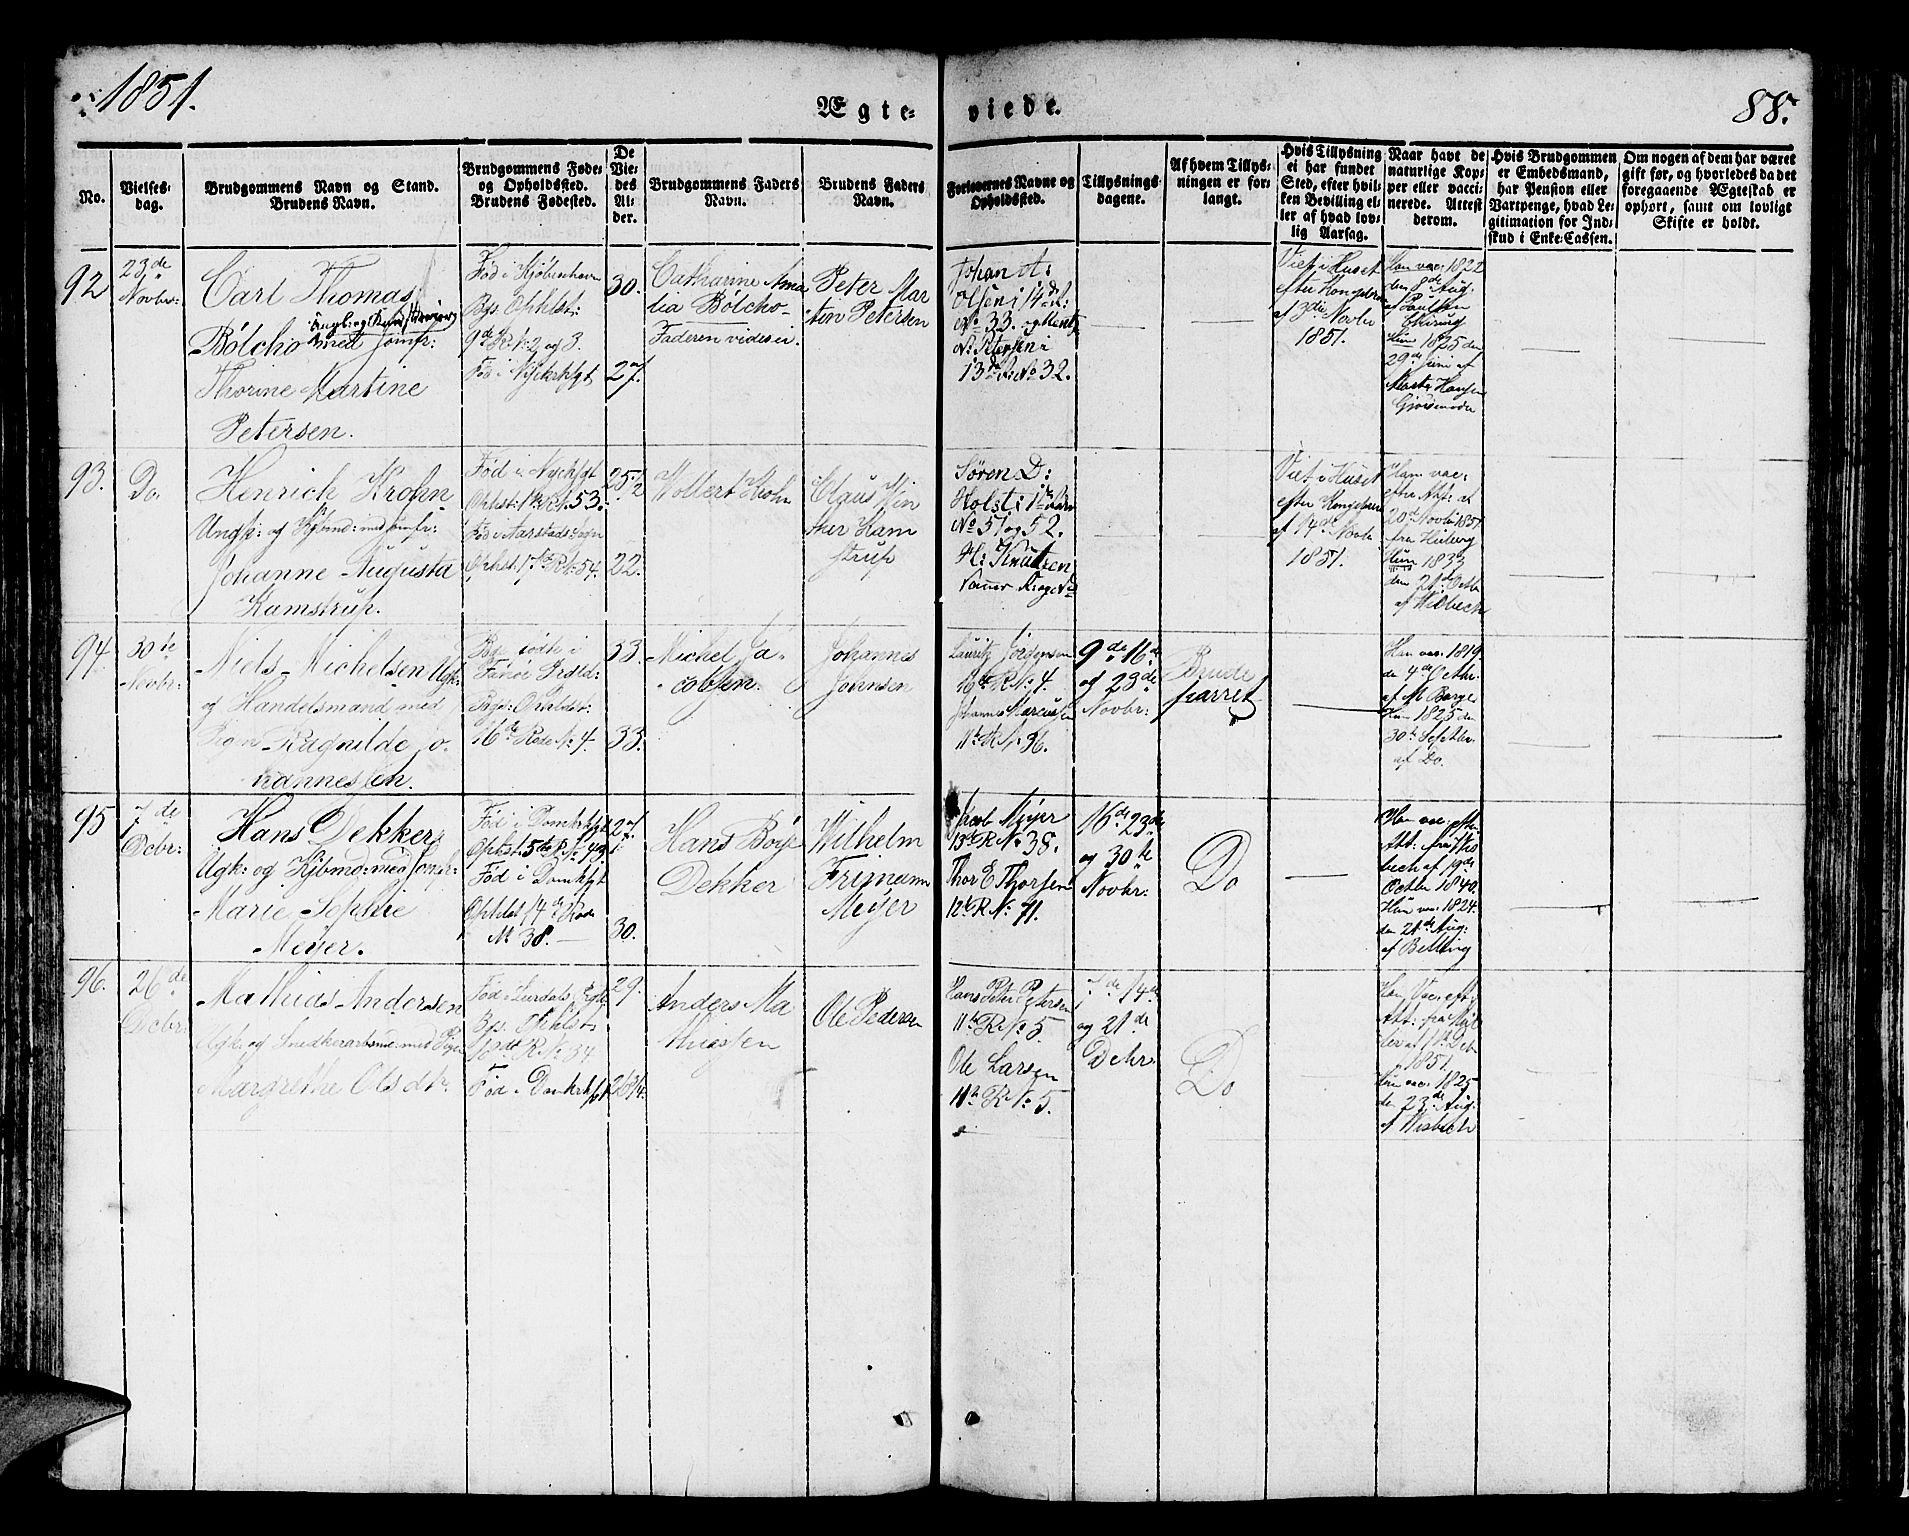 1851.
Ægte-
viede.
88.
No.
Vielses-
dag.
Brudgommens Navn og Stand.
Brudens Navn.
Brudgommens Føde-
og Opholdssted.
Brudens Fødested.
De
Vie-
des
Al-
der.
Brudgommens Faders
Navn.
Brudens Faders
Navn.
Forlovernes Navne og
Opholdssted.
Tillysnings-
dagene.
Af hvem Tillys-
ningen er for-
langt.
Hvis Tillysning
ei har fundet
Sted, efter hvil-
ken Bevilling el-
ler af hvad lov-
lig Aarsag.
Naar havt de
naturlige Kop-
per eller vacci-
nerede. Attest
derom.
Hvis Brudgommen
er Embedsmand,
har Pension eller
Vartpenge, hvad Le-
gitimation for Ind-
skud i Enke-Cassen.
Om nogen af dem har været
gift før, og hvorledes da det
foregaaende Ægteskab er
ophørt, samt om lovligt
Skifte er holdt.
92
23de
Novbr:
Carl Thomas
Bölcho med Jomfr:
Thorine Martine
Petersen.
Fød i Kjøbenhavn
Bgs Ophlst:
9de R. N: 2 og 3.
Fød i Nykirksgt
30.
27.
Catharine Ama
lia Bölcho
Faderen vides ei.
Peter Mar
tin Petersen
Johan A:
Olsen i 14de R:
No 33. og Mentz
N: Petersen i
13de R: No 32.
Viet i Huset
efter Kongebrev
af 3die Novbr
1851.
Han vac: 1822
den 8de Aug:
af Paulsen
Chirurg
Hun 1825 den
29de Juni af
Marta Hansen
Gjordmoder
93.
Do.
Henrich Krohn
Ungk: og Kjbmd: med Jomfr:
Johanne Augusta
Kamstrup.
Fød i Nyekksgt
Ophst: 1te R N: 53.
Fød i Aarstads Sogn
Ophst: 17de R N: 54.
25 1/2
22.
Wollert Krohn
Claus Win
ther Kam
strup
Søren D:
Holst i 1te Rode
No 51 og 52.
H: Knutzen
Viet i Huset
efter Kongebrev
af 14de Novbr
1851.
Han vac:
efter Att: af
20de Novbr 1851
fra Heiberg
Hun 1833
den 21de Octbr
af Wisbech
94.
30te
Novbr:
Niels Michelsen Ugk:
og Handelsmand med
Pigen Ragnilde Jo-
hannessen.
Bge fødte i
Fanøe Prstld:
Begs: Ophldst:
16de Rode N: 4
33.
33.
Michel Ja-
cobsen.
Johannes
Johnsen
Lauritz Jörgensen
16de R N: 4.
Johannes Marcussen
11te R N: 36.
9de 16de
og 23de
Novbr:
Brude
parret
Han vac: 1819
de 4de Octbr.
af M. Borge
Hun 1825 den
30te Septbr.
af Do.
95
7de
Dcbr:
Hans Dekker
Ugk: og Kjbmd: med Jomfr:
Marie Sophie
Meyer.
Fød i Domkksgt
Ophst: 5te R N: 49
Fød i Domksgt
Ophldst 14de Rode
N: 38.
27.
30.
Hans Böye
Dekker
Wilhelm
Frimann
Meyer
Jacob Meyer
13de R N: 38.
Thor E Thorsen
12te R N: 71.
16de 23de
og 30te
Novbr:
Do
Han vac: efter
Att: fra Wis
bech af 19de
Octbr 1840.
Hun vac: 1824.
den 21de Aug:
af Belling
96.
26de
Dcbr:
Mathias Andersen
Ugk: og Snedkerarbsmd: med Pigen
Margrethe Olsdtr:
Bgs. Ophlst:
18de R N: 34
Fød i Domkksgt
29.
26 3/4.
Anders Ma
thiassen
Ole Pedersen
Hans Peter Petersen
11te R N: 5.
Ole Larsen
11te R N: 5.
7de 14de
og 21de
Debr
Do
Han Vac: eft:
Att: fra
af 11te Dcbr
1851.
Hun vac: 1825
den 23de Aug.
af Wisbech